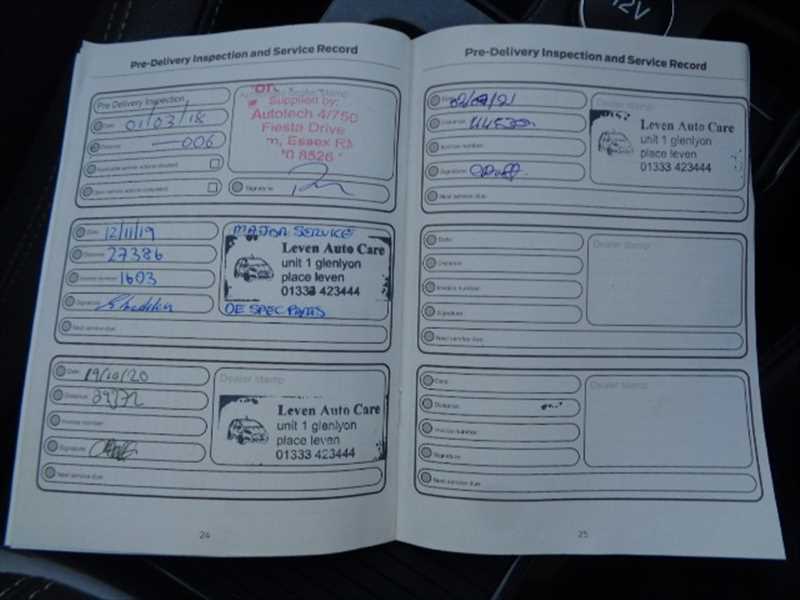 12V
Pre-Delivery Inspection and Service Record
Pre Delivery Inspection
Date 01/03/18
Distance 006
Supplied by:
Autotech 4/750
Fiesta Drive
Essex
8526
Signature
Date: 12/11/19
Distance: 27386
Invoice number: 1603
Signature:
Next service due:
MAJOR SERVICE
Leven Auto Care
unit 1 glenlyon
place leven
01333 423444
OE SPEC PARTS
Date: 19/10/20
Distance:
Invoice number:
Signature:
Next service due:
Dealer stamp
Leven Auto Care
unit 1 glenlyon
place leven
01333 423444
24
Pre-Delivery Inspection and Service Record
Distance:
Invoice number:
Signature:
Next service due:
Dealer stamp
Leven Auto Care
unit 1 glenlyon
place leven
01333 423444
Date:
Distance:
Invoice number:
Signature:
Next service due:
Dealer stamp
Date:
Distance:
Invoice number:
Signature:
Next service due:
Dealer stamp
25